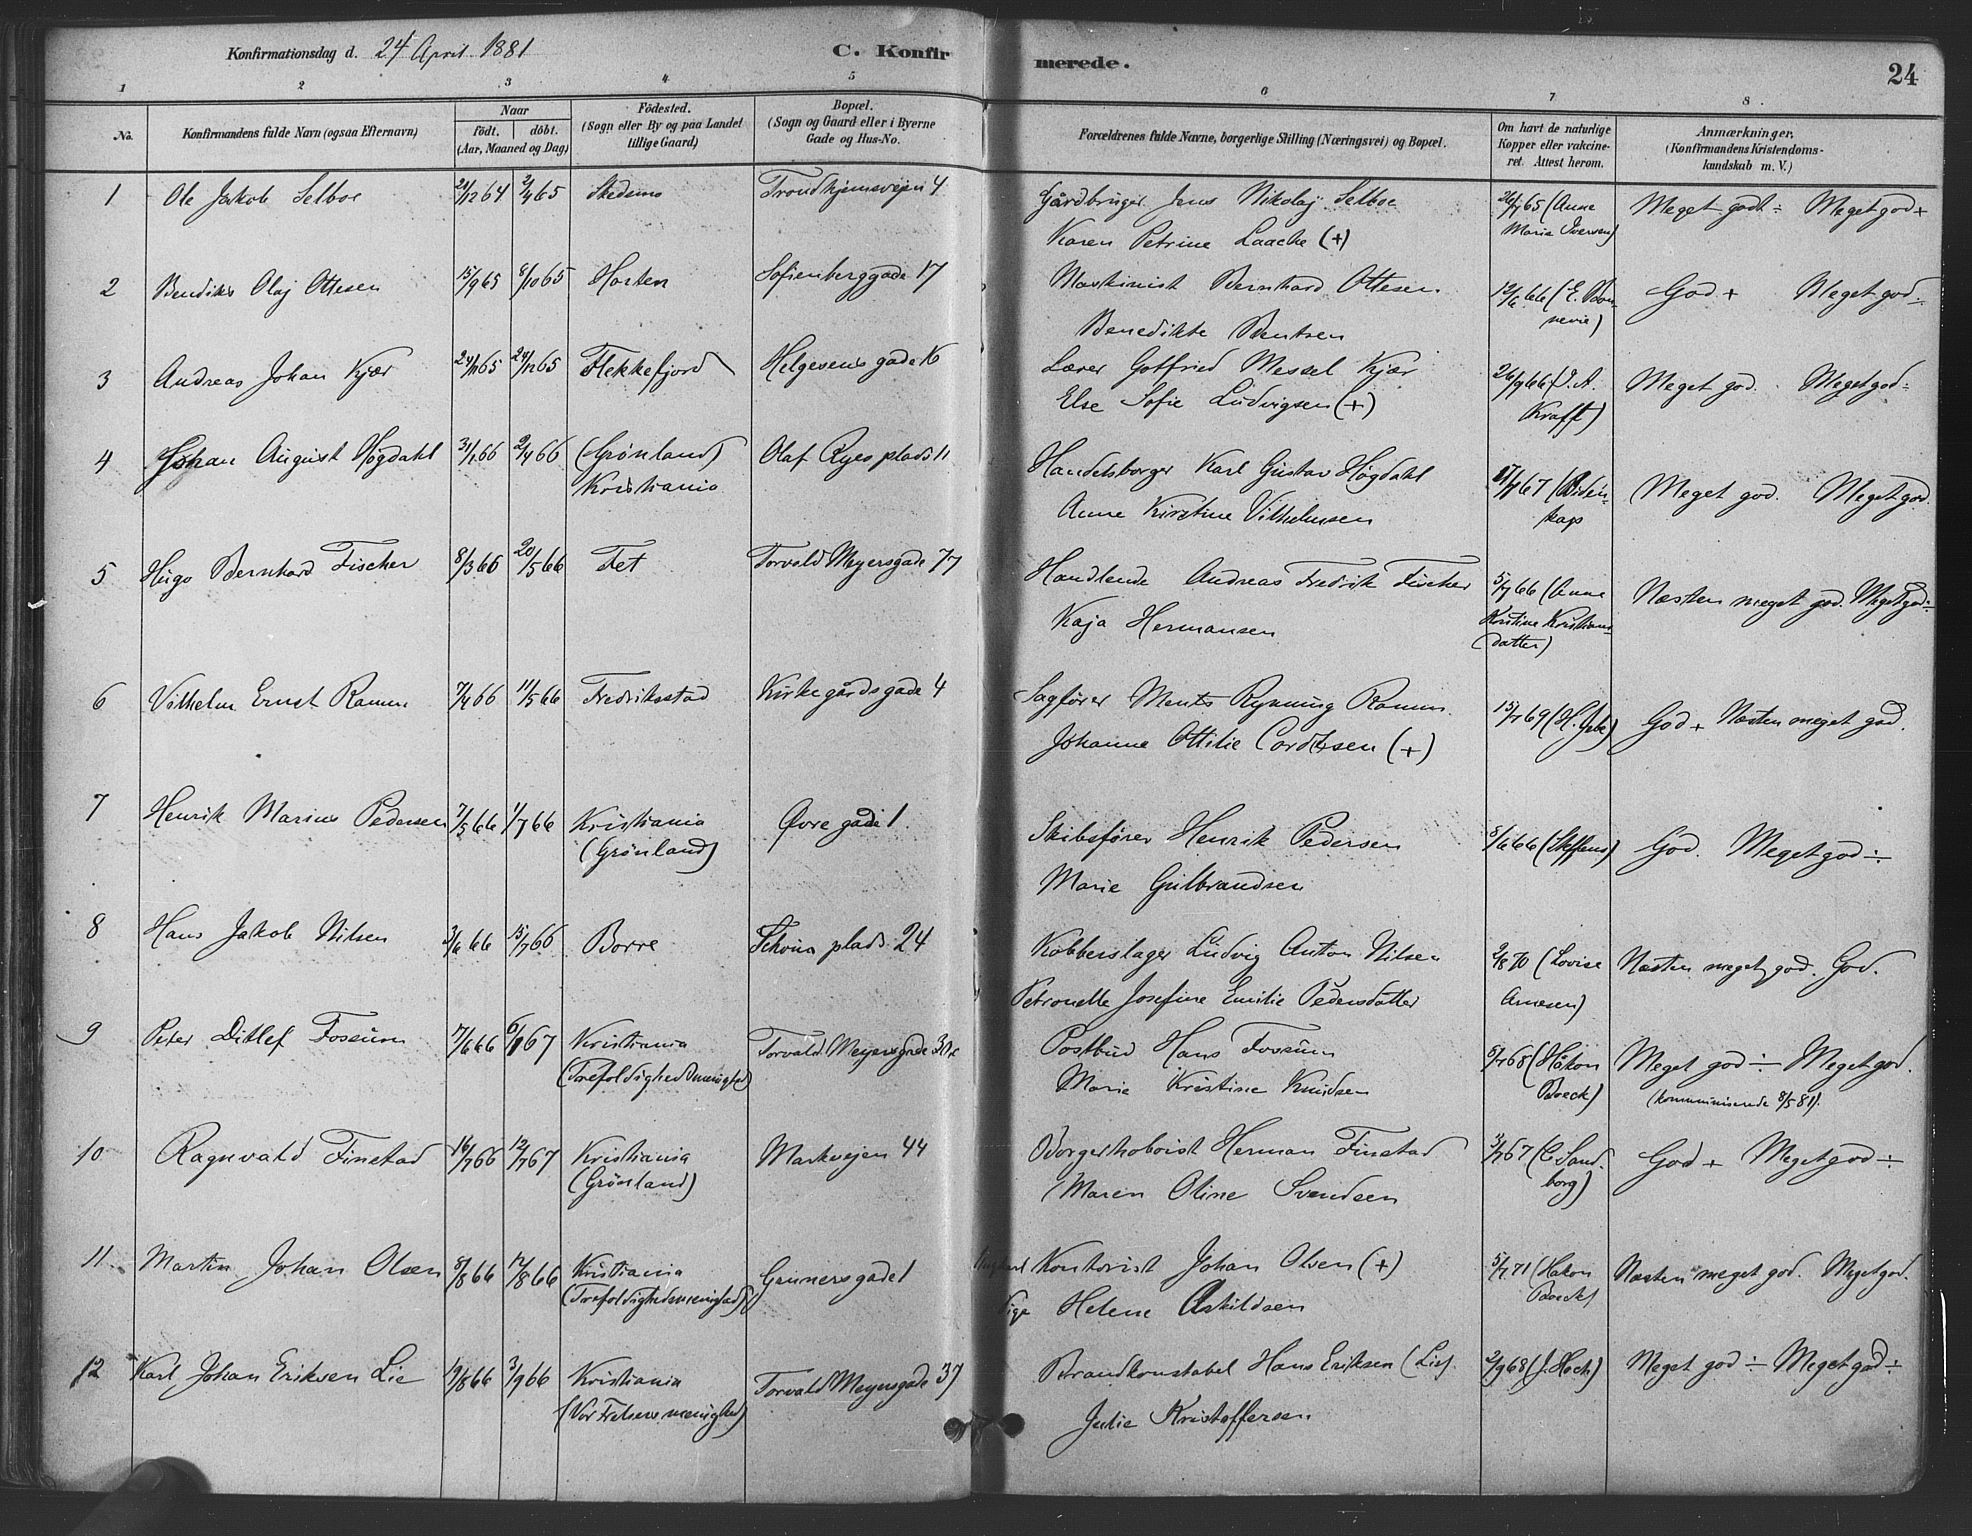 Konfirmationsdag d. 24 April 1881
C. Konfirmerede.
24
1 2 3 4 5 6 7 8
No.
Konfirmandens fulde Navn (ogsaa Efternavn)
Naar
födt. döbt.
(Aar, Maaned og Dag)
Födested.
(Sogn eller By og paa Landet
tillige Gaard)
Bopæl.
(Sogn og Gaard eller i Byerne
Gade og Hus-No.
Forældrenes fulde Navne, borgerlige Stilling (Næringsvei) og Bopæl.
Om havt de naturlige
Kopper eller vakcine-
ret. Attest herom.
Anmærkninger.
(Konfirmandens Kristendoms-
kundskab m. V.)
1 Ole Jakob Selboe 2/4 65 Skedsmo Trondhjemsvejen 4 Gårdbruger Jens Nikolaj Selboe (Anne Meget godt ÷ Meget god +
Karen Petrine Laache (+) Maria Iversen)
2 Bendiks Olaj Ottesen 15/9 65 8/10 65 Horten Sofienberggade 17 Maskinist Bernhard Ottesen 12/6 66 (E. Bon- God + Meget god ÷
Benedikte Bentsen nevie)
3 Andreas Johan Kjær 24/11 65 24/12 65 Flekkefjord Helgesens gade 16 Lærer Gotfried Messel Kjær 26/9 66 (J. A. Meget god. Meget god ÷
Else Sofie Ludvigsen (+) Kraft)
4 Johan August Høgdahl 31/1 66 2/4 66 (Grønland) Olaf Ryes plads 11 Handelsborger Karl Gustav Høgdahl Meget god. Meget god.
Kristiania Anne Kirstine Vilhelmsen
5 Hugo Bernhard Fischer 8/3 66 20/5 66 Fet Torvald Meyersgade 77 Handlende Andreas Fredrik Fischer 5/7 66 (Anne Næsten meget god. Meget god ÷
Kaja Hermansen Kristine Kristians-
datter)
6 Vilhelm Ernst Ramm 7/4 66 11/5 66 Fredriksstad Kirkegårdsgade 4 Sagfører Ments Rynning Ramm. 15/7 69 God + Næsten meget god.
Johanne Ottilie Cordtsen (+)
7 Henrik Marius Pedersen 7/5 66 1/7 66 Kristiania Øvre gade 1 Skibsfører Henrik Pedersen 8/6 66 (Steffens) God. Meget god ÷
(Grønland) Marie Gulbrandsen
8 Hans Jakob Nilsen 3/6 66 15/7 66 Borre plads 24 Kobberslager Ludvig Anton Nilsen 2/8 70 (Lovise Næsten meget god. God.
Petronelle Josefine Emilie Pedersdatter Arnesen)
9 Peter Ditlef Fossum 7/6 66 6/1 67 Kristiania Torvald Meyersgade Postbud Hans Fossum (Håkon Meget god ÷ Meget god.
(Trefoldighedsmenighed) Marie Kristine Knudsen Boeck) (kommuniserede 8/5 81).
10 Ragnvald Finstad 16/7 66 12/7 67 Kristiania Markvejen 44 Borgerhoboist Herman Finstad 3/7 67 (C. Sand- God + Meget god ÷
(Grønland) Maren Oline Svendsen borg)
11 Martin Johan Olsen 8/8 66 12/8 66 Kristiania Grünersgade 1 Kontorist Johan Olsen (+) 5/7 71 (Håkon Næsten meget god. Meget god.
(Trefoldighedsmenighed) Pige Helene Askildsen Boeck)
12 Karl Johan Eriksen Lie 19/8 66 3/9 66 Kristiania Torvald Meyersgade 37 Brandkonstabel Hans Eriksen (Lie). 2/9 68 (J. Hoch) Meget god ÷ Meget god ÷
(Vor Frelsers menighed) Julie Kristoffersen